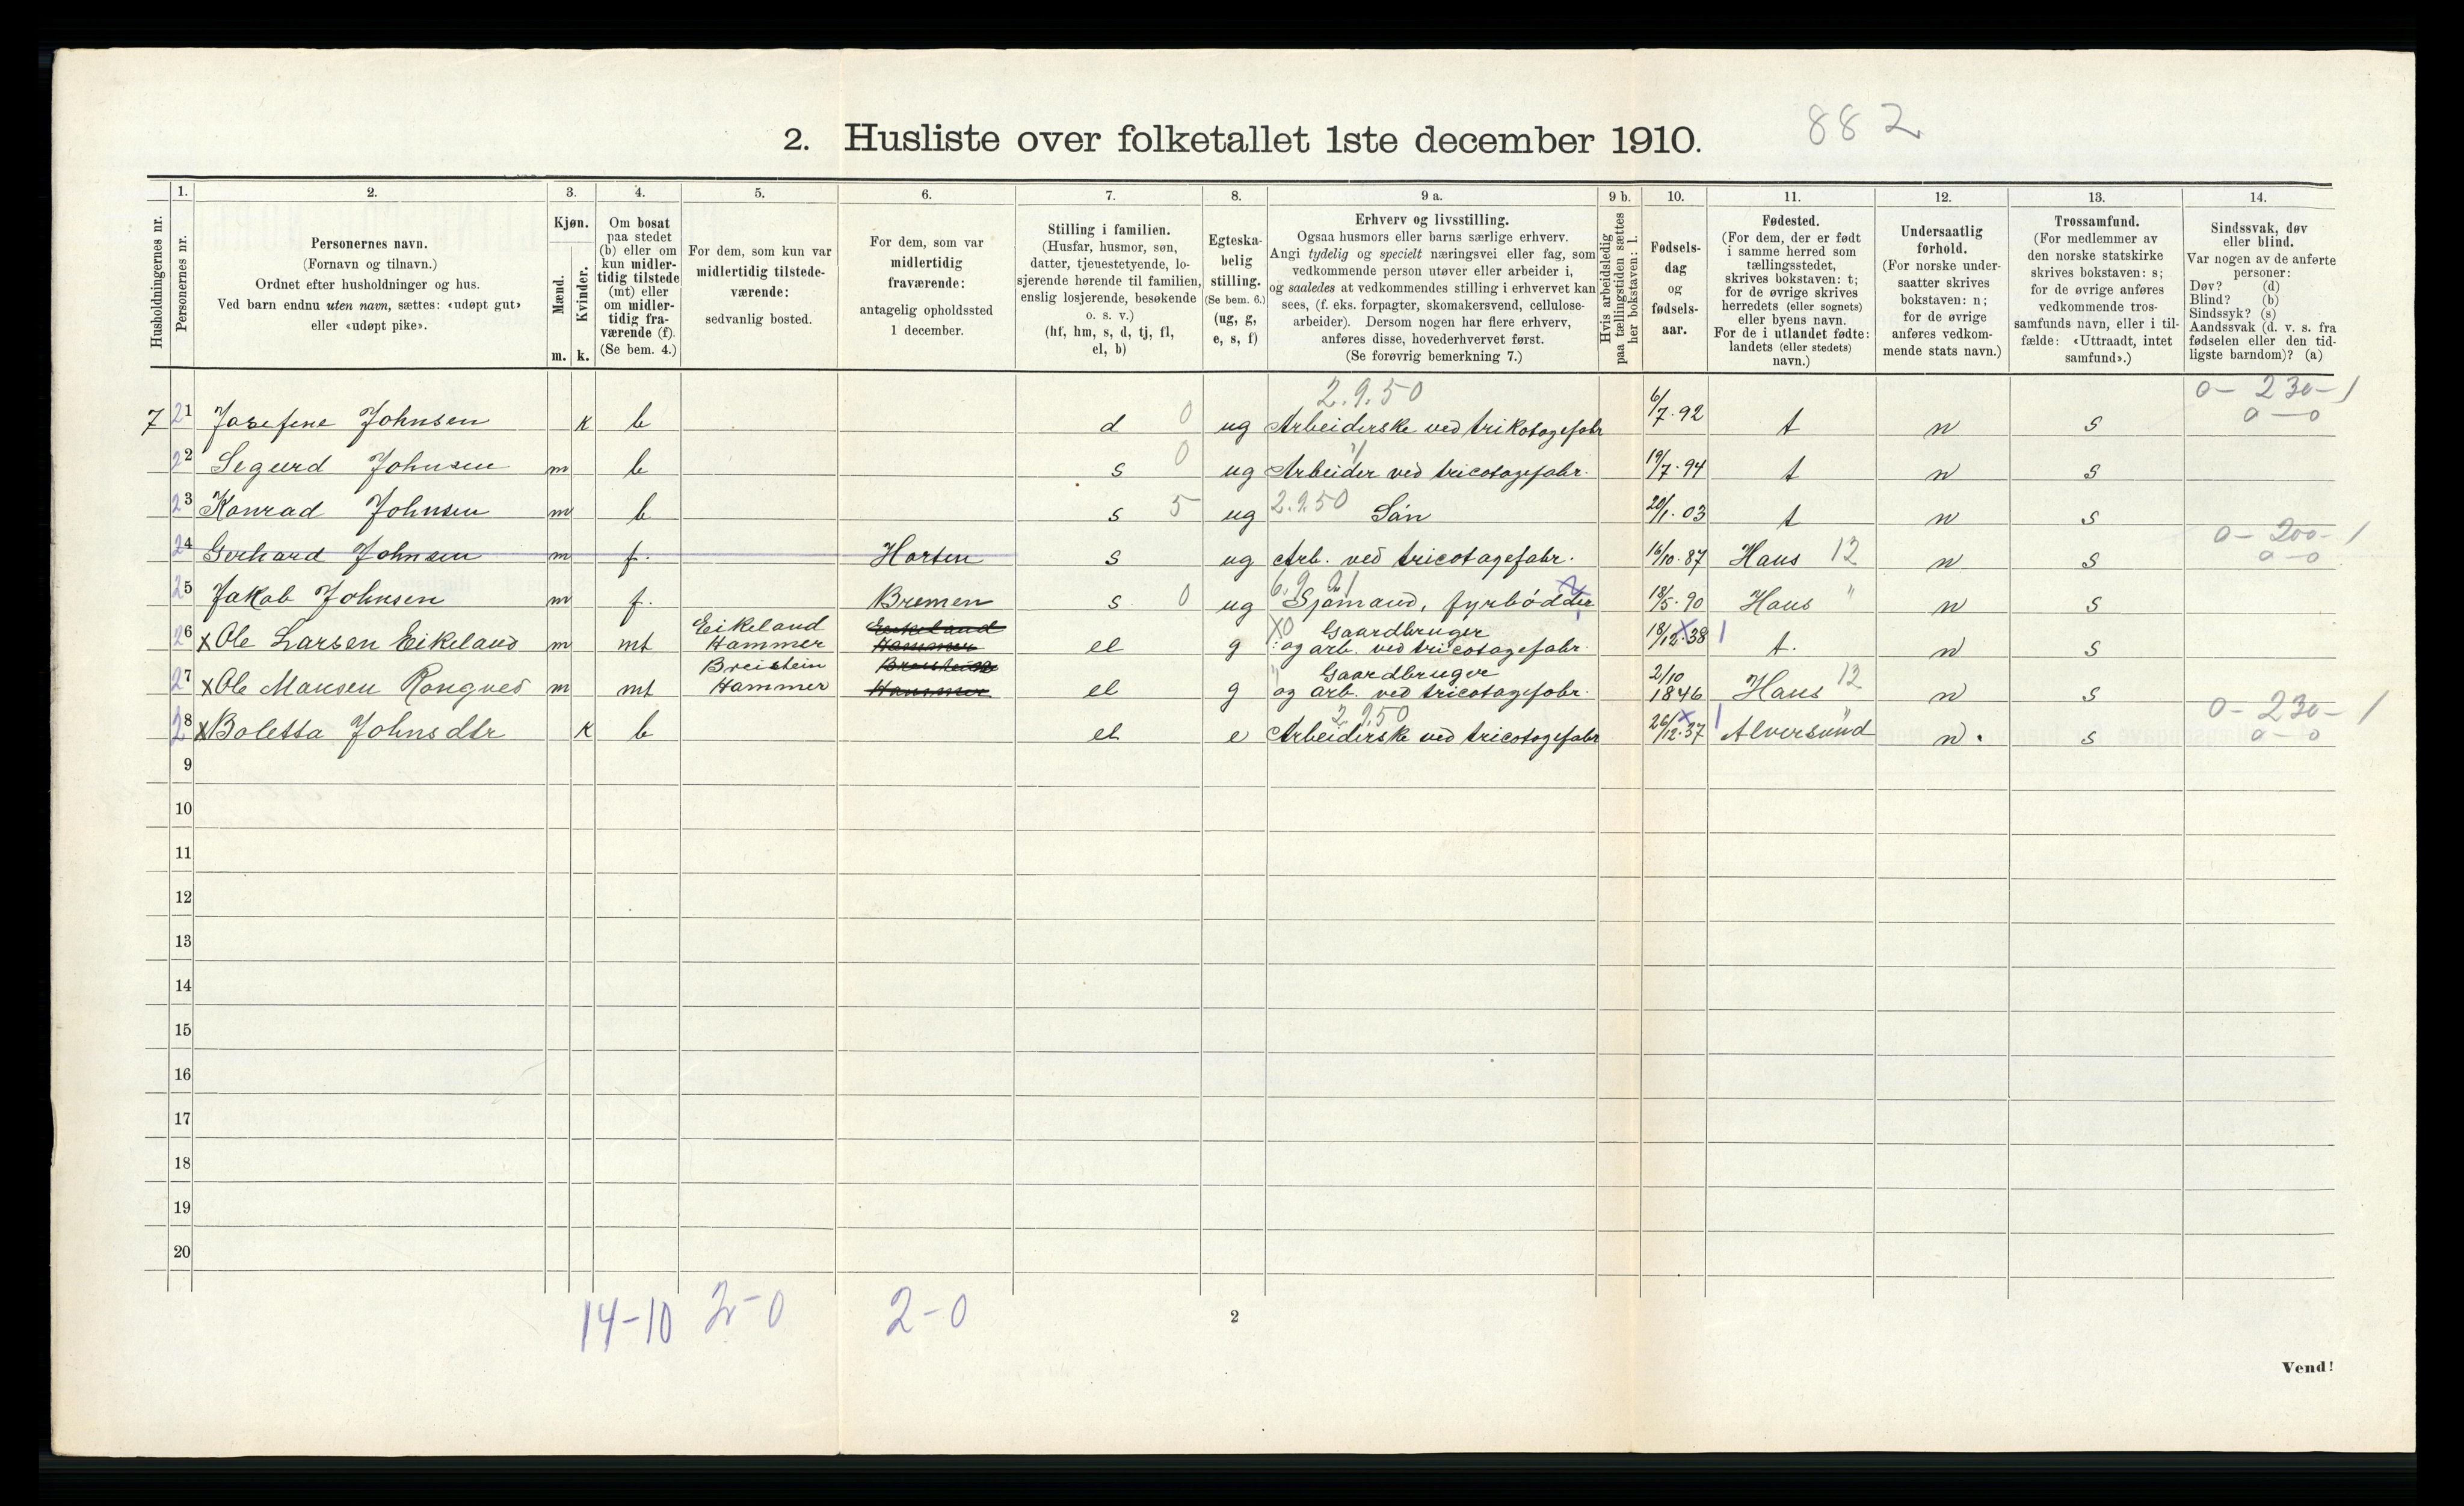 882
2. Husliste over folketallet 1ste december 1910.
Husholdningernes nr.
1. Personernes nr.
2. Personernes navn.
(Fornavn og tilnavn.)
Ordnet efter husholdninger og hus.
Ved barn endnu uten navn, sættes: «udøpt gut»
eller «udøpt pike».
3. Kjøn.
Mænd. m.
Kvinder. k.
4. Om bosat
paa stedet
(b) eller om
kun midler-
tidig tilstede
(mt) eller
om midler-
tidig fra-
værende (f).
(Se bem. 4.)
5. For dem, som kun var
midlertidig tilstede-
værende:
sedvanlig bosted.
6. For dem, som var
midlertidig
fraværende:
antagelig opholdssted
1 december.
7. Stilling i familien.
(Husfar, husmor, søn,
datter, tjenestetyende, lo-
sjerende hørende til familien,
enslig losjerende, besøkende
o. s. v.)
(hf, hm, s, d, tj, fl,
el, b)
8. Egteska-
belig
stilling.
(Se bem. 6.)
(ug, g,
e, s, f)
9 a. Erhverv og livsstilling.
Ogsaa husmors eller barns særlige erhverv.
Angi tydelig og specielt næringsvei eller fag, som
vedkommende person utøver eller arbeider i,
og saaledes at vedkommendes stilling i erhvervet kan
sees, (f. eks. forpagter, skomakersvend, cellulose-
arbeider). Dersom nogen har flere erhverv,
anføres disse, hovederhvervet først.
(Se forøvrig bemerkning 7.)
9 b. Hvis arbeidsledig
paa tællingstiden sættes
her bokstaven: l.
10. Fødsels-
dag
og
fødsels-
aar.
11. Fødested.
(For dem, der er født
i samme herred som
tællingsstedet,
skrives bokstaven: t;
for de øvrige skrives
herredets (eller sognets)
eller byens navn.
For de i utlandet fødte:
landets (eller stedets)
navn.)
12. Undersaatlig
forhold.
(For norske under-
saatter skrives
bokstaven: n;
for de øvrige
anføres vedkom-
mende stats navn.)
13. Trossamfund.
(For medlemmer av
den norske statskirke
skrives bokstaven: s;
for de øvrige anføres
vedkommende tros-
samfunds navn, eller i til-
fælde: «Uttraadt, intet
samfund».)
14. Sindssvak, døv
eller blind.
Var nogen av de anførte
personer:
Døv? (d)
Blind? (b)
Sindssyk? (s)
Aandssvak (d. v. s. fra
fødselen eller den tid-
ligste barndom)? (a)
2.9.50 0 - 230 - 1
7 21 Josefine Johnsen k b d 0 ug Arbeiderske ved trikotagefabr 6/7.92 t n s 0 - 0
22 Sigurd Johnsen m b s 0 ug Arbeider ved tricotagefabr. 19/7.94 t n s
23 Konrad Johnsen m b s 5 ug 2.9.50 Sön 20/1.03 t n s
0 - 200 - 1
24 Gerhard Johnsen m f. Horten s ug Arb. ved tricotagefabr. 16/10.87 Haus 12 n s 0 - 0
25 Jakob Johnsen m f. Bremen s 0 ug Sjömand, fyrbödder 18/5.90 Haus " n s
Eikeland Eikeland X0 Gaardbruger
26 x Ole Larsen Eikeland m mt Hammer Hammer el g og arb. ved tricotagefabr. 18/12.38 1 t. n s
Breistein Breistein " Gaardbruger 2/10
27 x Ole Monsen Rongved m mt Hammer Hammer el g og arb. ved tricotagefabr. 1846 Haus 12 n s
2.9.50 0 - 230 - 1
28 x Boletta Johnsdtr k b el e Arbeiderske ved tricotagefabr 26/12.37 1 Alversund " n. s 0 - 0
9
10
11
12
13
14
15
16
17
18
19
20
14-10 2-0 2-0
2
Vend!